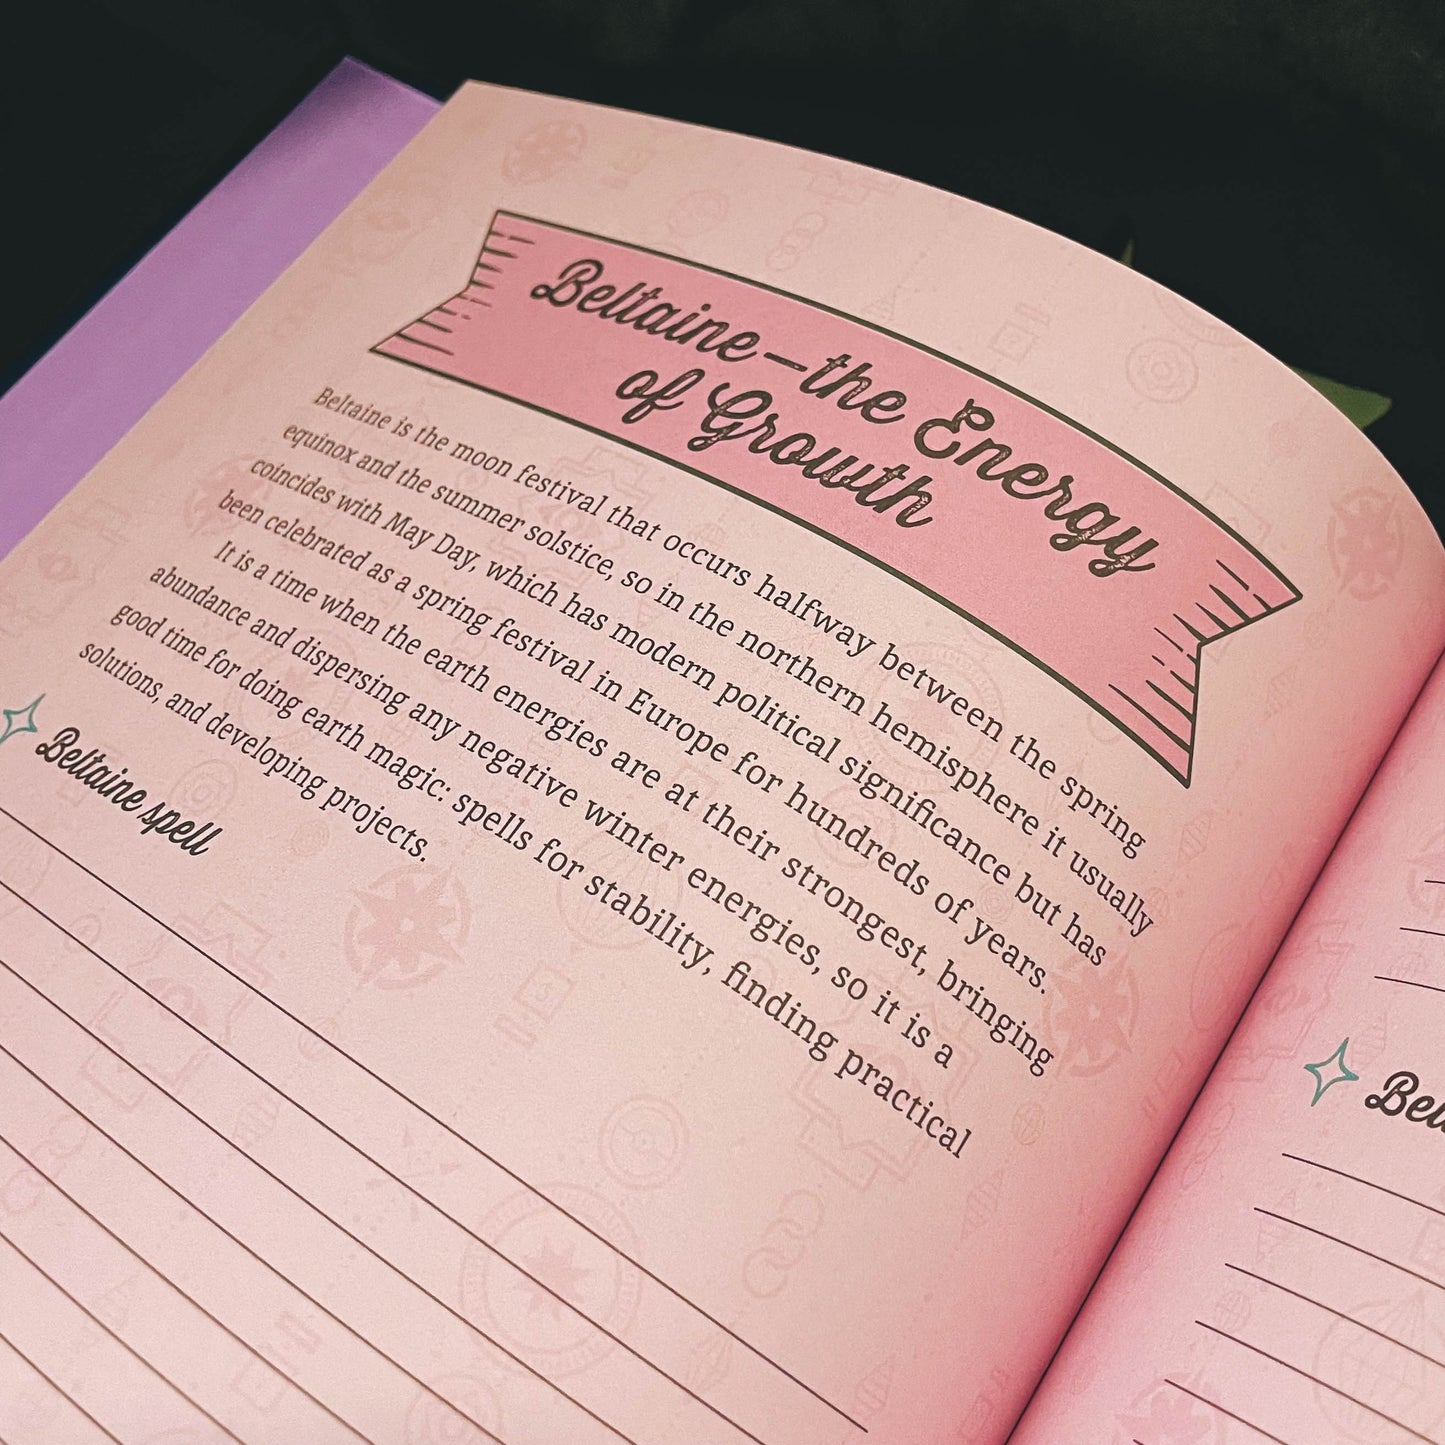 Beltaine—the Energy
of Growth
Beltaine is the moon festival that occurs halfway between the spring
equinox and the summer solstice, so in the northern hemisphere it usually
coincides with May Day, which has modern political significance but has
been celebrated as a spring festival in Europe for hundreds of years.
It is a time when the earth energies are at their strongest, bringing
abundance and dispersing any negative winter energies, so it is a
good time for doing earth magic: spells for stability, finding practical
solutions, and developing projects.
Beltaine spell